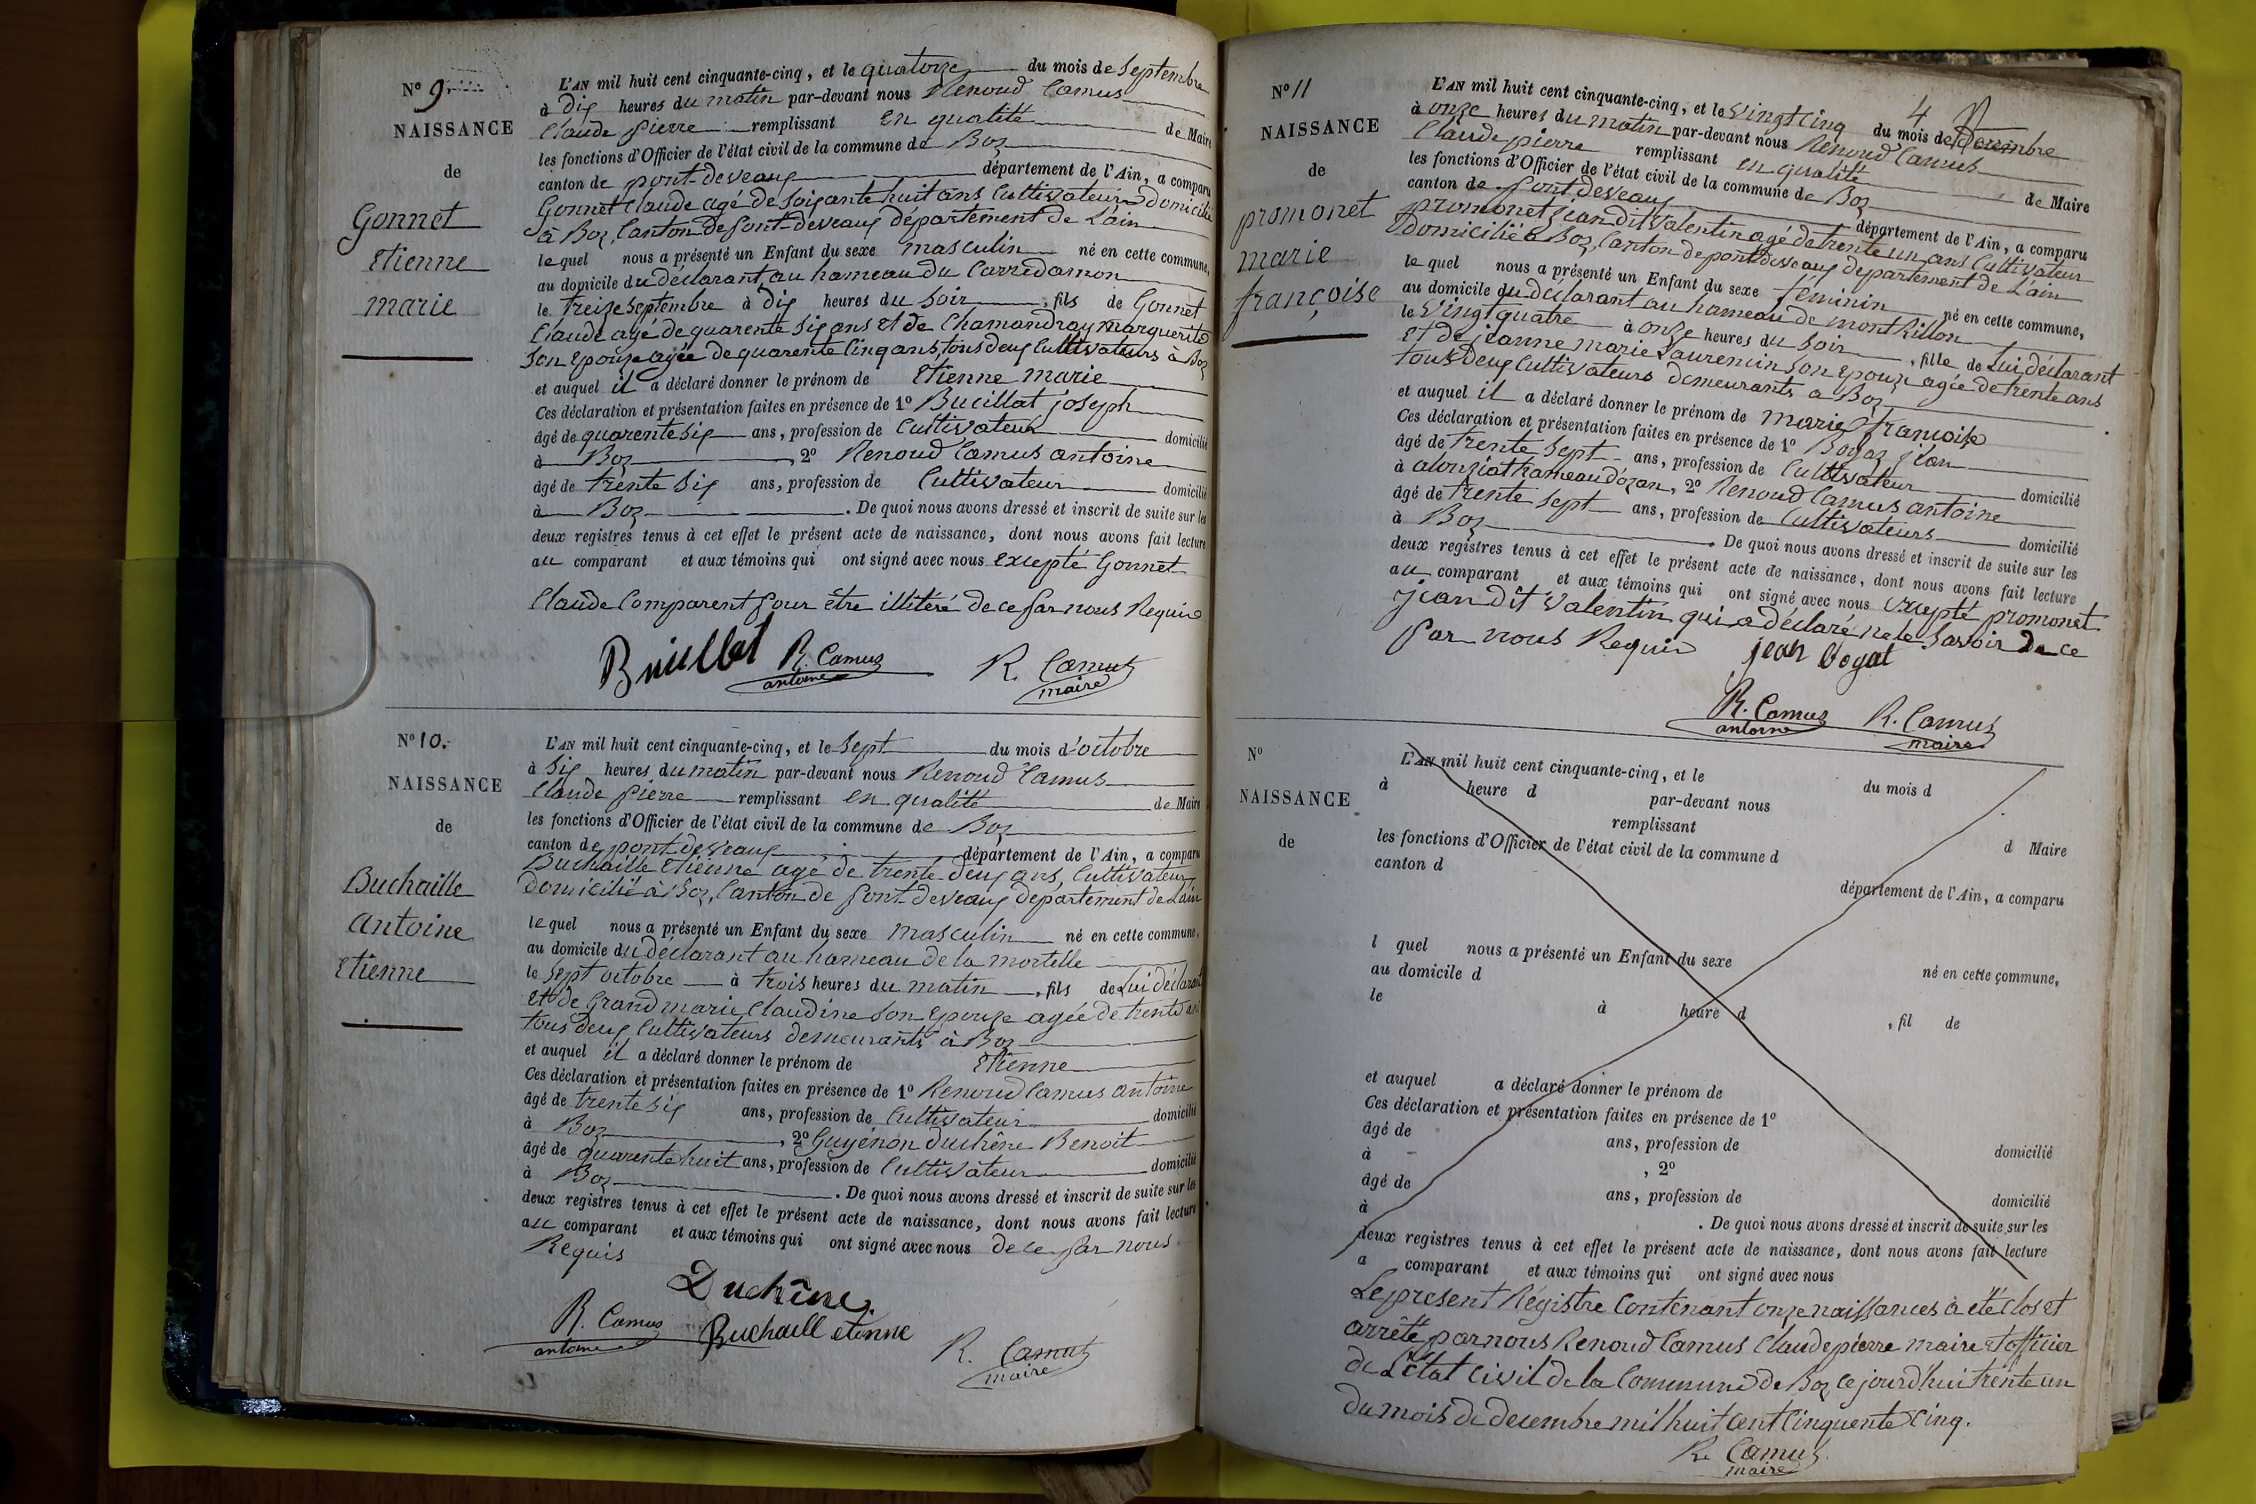 N° 9.
NAISSANCE
de
Gonnet
Etienne
marie
L'AN mil huit cent cinquante-cinq, et le quatorze du mois de Septembre
à dix heures du matin par-devant nous Renoud Camus
Claude pierre remplissant en qualité de Maire
les fonctions d'Officier de l'état civil de la commune de Boz
canton de pont-deveaux département de l'Ain, a comparu
Gonnet Claude agé de soixante huit ans Cultivateur domicilié
à Boz, Canton de pont-deveaux département de L'ain
le quel nous a présenté un Enfant du sexe masculin né en cette commune,
au domicile du déclarant, au hameau du Carredamon
le treize Septembre à dix heures du soir, fils de Gonnet
Claude agé de quarente six ans et de Chamandray marguerite
Son Epouze agée de quarente Cinq ans, tous deux Cultivateurs à Boz
et auquel il a déclaré donner le prénom de Etienne marie
Ces déclaration et présentation faites en présence de 1° Bucillat joseph
âgé de quarente six ans, profession de Cultivateur domicilié
à Boz, 2° Renoud Camus antoine
âgé de trente six ans, profession de Cultivateur domicilié
à Boz. De quoi nous avons dressé et inscrit de suite sur les
deux registres tenus à cet effet le présent acte de naissance, dont nous avons fait lecture
au comparant et aux témoins qui ont signé avec nous excepté Gonnet
Claude Comparent pour être illitéré de ce par nous Requis
R. Camus antoine
R. Camus maire
N° 10.
NAISSANCE
de
Buchaille
antoine
Etienne
L'AN mil huit cent cinquante-cinq, et le Sept du mois d'octobre
à Six heures du matin par-devant nous Renoud Camus
Claude pierre remplissant en qualité de Maire
les fonctions d'Officier de l'état civil de la commune de Boz
canton de pont deveaux département de l'Ain, a comparu
Buchaille Etienne agé de trente-deux ans, Cultivateur
domicilié à Boz, Canton de pont-deveaux département de L'ain
le quel nous a présenté un Enfant du sexe masculin né en cette commune,
au domicile du déclarant au hameau de la mortelle
le Sept octobre à trois heures du matin, fils de Lui déclarant
et de Grand marie Claudine Son Epouze agée de trente ans
tous deux Cultivateurs demeurants à Boz
et auquel il a déclaré donner le prénom de Etienne
Ces déclaration et présentation faites en présence de 1° Renoud Camus antoine
âgé de trente six ans, profession de Cultivateur domicilié
à Boz, 2° Guyénon duchêne Benoit
âgé de quarente huit ans, profession de Cultivateur domicilié
à Boz. De quoi nous avons dressé et inscrit de suite sur les
deux registres tenus à cet effet le présent acte de naissance, dont nous avons fait lecture
au comparant et aux témoins qui ont signé avec nous de ce par nous
Requis
Duchêne
R. Camus antoine
Buchaill etienne
R. Camus maire
N° 11
NAISSANCE
de
promonet
marie
françoise
L'AN mil huit cent cinquante-cinq, et le Vingt Cinq du mois de Décembre
à onze heures du matin par-devant nous Renoud Camus
Claude pierre remplissant en qualité de Maire
les fonctions d'Officier de l'état civil de la commune de Boz
canton de pont deveaux département de l'Ain, a comparu
promonet jean dit Valentin agé de trente un ans Cultivateur
domicilié à Boz, Canton de pont deveaux département de L'ain
le quel nous a présenté un Enfant du sexe feminin né en cette commune,
au domicile du déclarant au hameau de mont Rillon
le Vingt quatre à onze heures du soir, fille de Lui déclarant
et de jeanne marie Laurencin Son Epouze agée de trente ans
tous deux Cultivateurs demeurants à Boz
et auquel il a déclaré donner le prénom de marie françoise
Ces déclaration et présentation faites en présence de 1° Bogaz jean
âgé de trente Sept ans, profession de Cultivateur domicilié
à alonziat hameau d'ozan, 2° Renoud Camus antoine
âgé de trente Sept ans, profession de Cultivateurs domicilié
à Boz. De quoi nous avons dressé et inscrit de suite sur les
deux registres tenus à cet effet le présent acte de naissance, dont nous avons fait lecture
au comparant et aux témoins qui ont signé avec nous excepté promonet
jean dit Valentin qui a déclaré ne le Savoir de ce
par nous Requis
jean bogat
R. Camus antoine
R. Camus maire
N°
NAISSANCE
de
L'AN mil huit cent cinquante-cinq, et le du mois d
à heure d par-devant nous
remplissant d Maire
les fonctions d'Officier de l'état civil de la commune d
canton d département de l'Ain, a comparu
l quel nous a présenté un Enfant du sexe né en cette commune,
au domicile d
le à heure d, fil de
et auquel a déclaré donner le prénom de
Ces déclaration et présentation faites en présence de 1°
âgé de ans, profession de domicilié
à , 2°
âgé de ans, profession de domicilié
à . De quoi nous avons dressé et inscrit de suite sur les
deux registres tenus à cet effet le présent acte de naissance, dont nous avons fait lecture
a comparant et aux témoins qui ont signé avec nous
Le présent Régistre Contenant onze naissances à été Clos et
arrêté par nous Renoud Camus Claude pierre maire et officier
de L'état Civil de la Commune de Boz, ce jourd'hui trente un
du mois de decembre mil huit cent Cinquente Cinq.
R. Camus maire